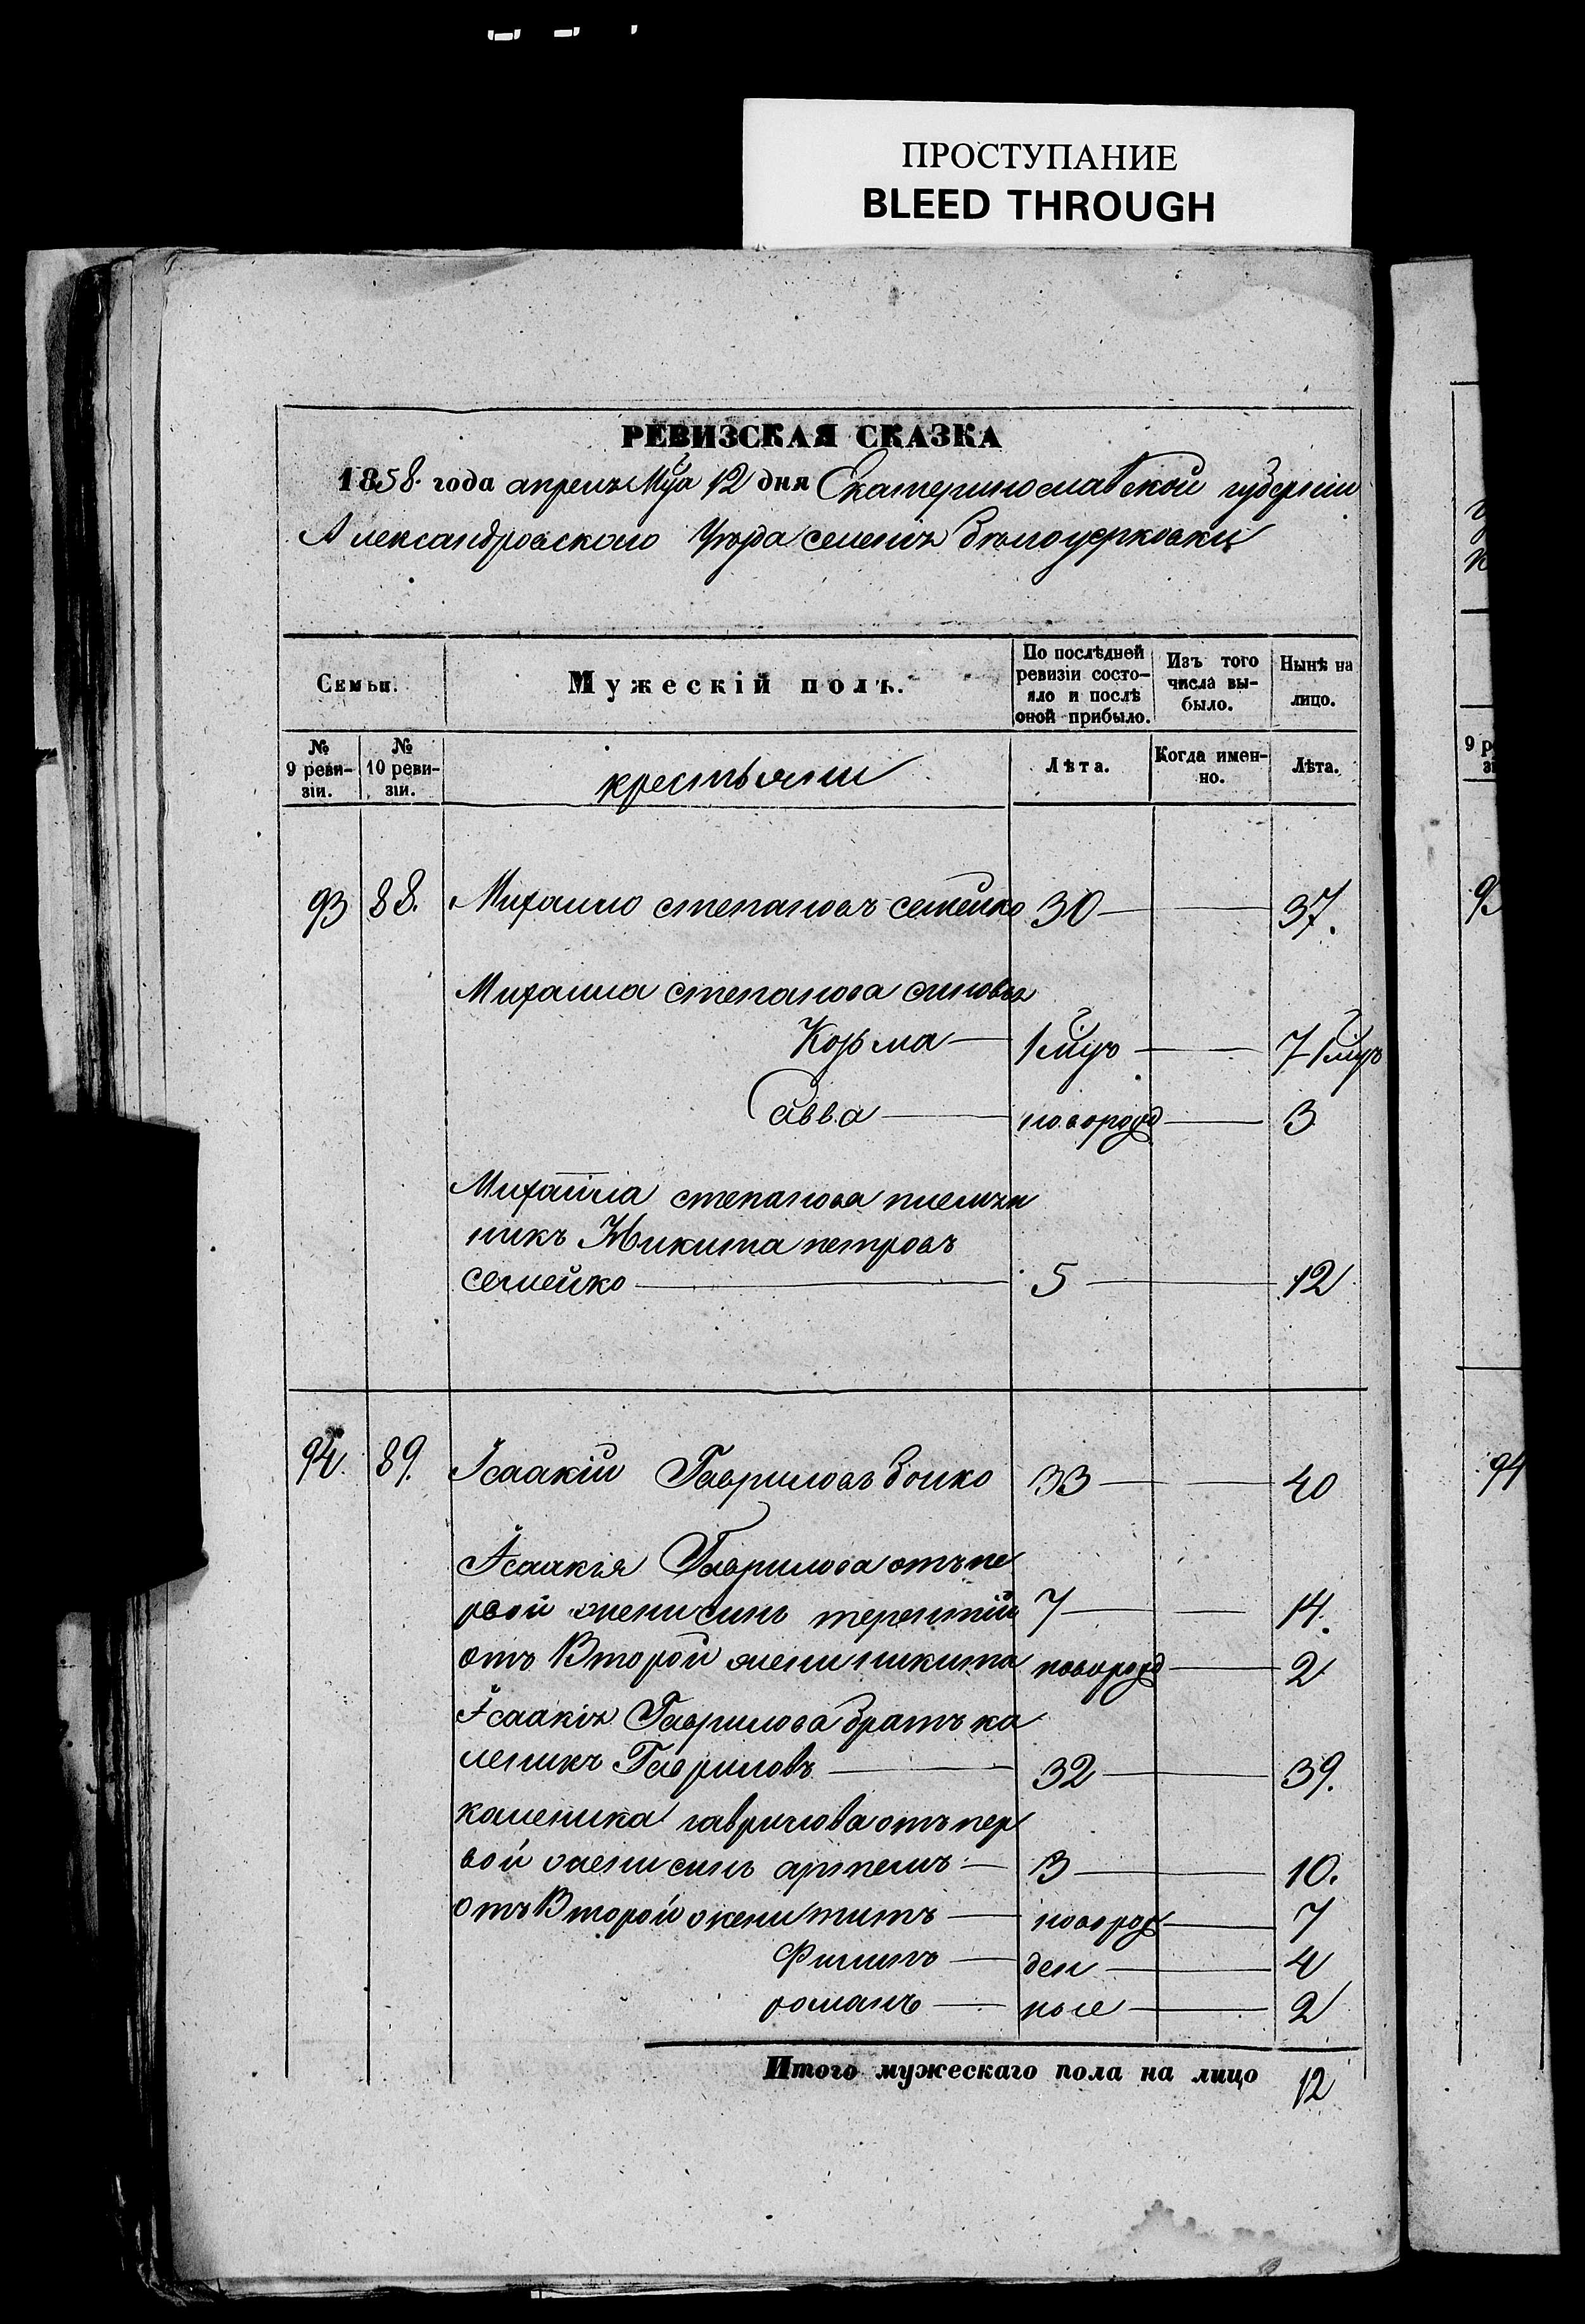 ПРОСТУПАНИЕ
BLEED THROUGH
РЕВИЗСКАЯ СКАЗКА
1858. года апреля Мца 12 дня Екатеринославской губернии
Александровского Уезда селения белоцерковки
Семьи.
Мужескій полъ.
По послѣдней ревизіи состояло и послѣ оной прибыло.
Изъ того числа выбыло.
Нынѣ на лицо.
№ 9 ревизіи.
№ 10 ревизіи.
крестьяни
Лѣта.
Когда именно.
Лѣта.
93 88. Михайло степановъ семейко 30 37.
Михаила степанова синовья
Козма 1 мцъ 7 1 мцъ
Савва новорожд 3
Михаила степанова племян
никъ Никита петровъ
семейко 5 12
94. 89. Ісаакій Гавриловъ бойко 33 40
Ісаакія Гаврилова отъ пе
рвой жени синъ терентій 7 14.
отъ Второй жени никита новорожд 2
Ісаакія Гаврилова братъ ка
леникъ Гавриловъ 32 39.
каленика гаврилова отъ пер
вой жени синъ артемъ 3 10.
отъ Второй жени титъ новорож 7
Филипъ ден 4
романъ 2
Итого мужескаго пола на лицо 12
9 р
93
94